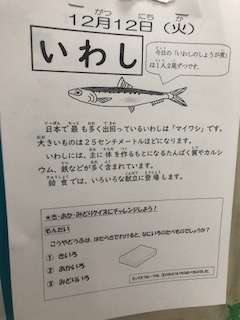 12月12日（火）
いわし
今日の「いわしのしょうが煮」
は1人2尾ずつです。
日本で最も多く出回っているいわしは「マイワシ」です。
大きいものは25センチメートルほどになります。
いわしには、主に体を作るもとになるたんぱく質やカルシ
ウム、鉄などが多く含まれています。
給食では、いろいろな献立に登場します。
クイズにチャレンジしよう！
もんだい
こうやどうふは、はたらきでわけると、なにいろのたべものでしょうか？
① きいろ
② あかいろ
③ みどりいろ